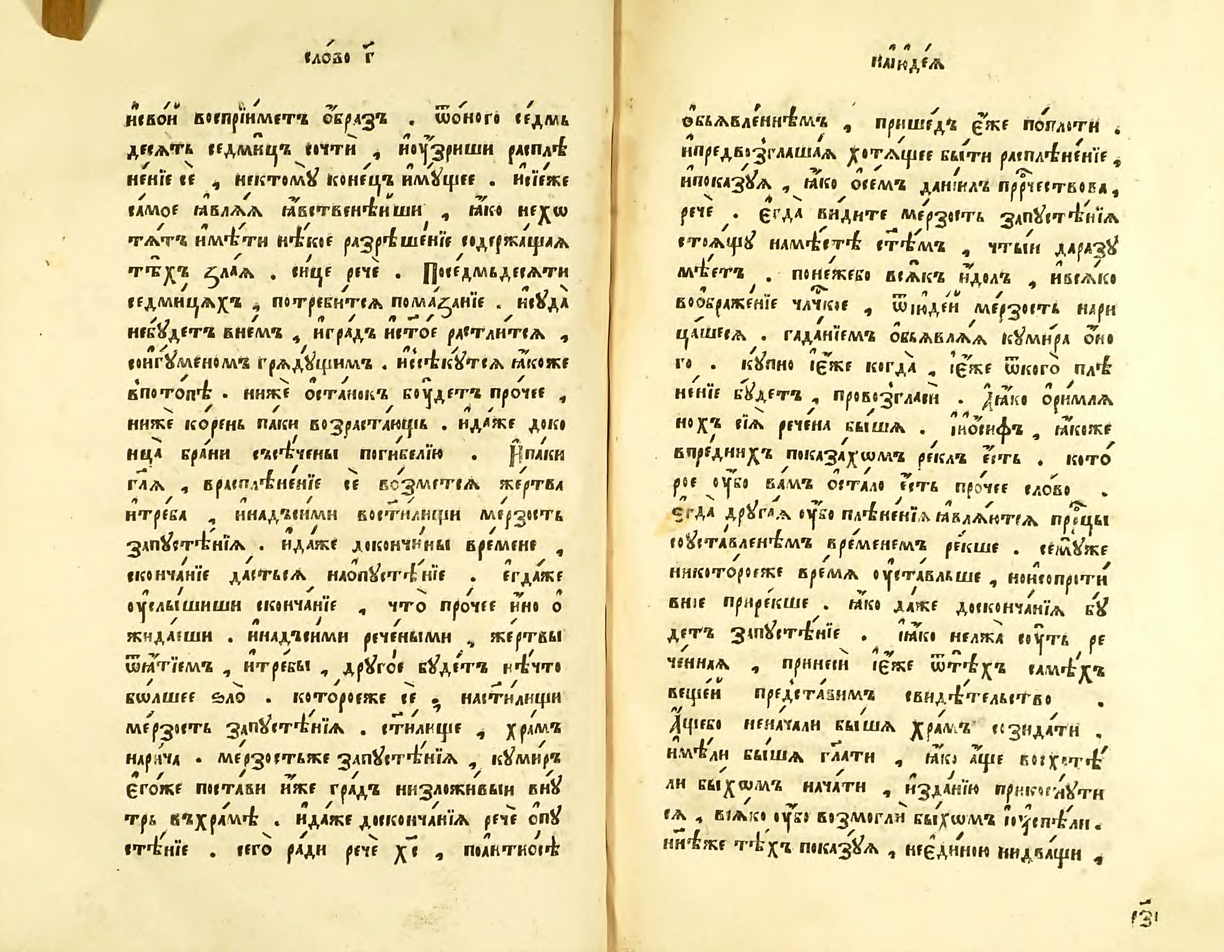 сло́во г҃
и҆сво́й воспрїи́метъ ѻ҆́бразъ . ѿѻ́ного се́дмь
десѧ́тъ седми́цъ сочтѝ , и҆оу҆́зриши распле
не́нїе сѐ , нектомꙋ̀ коне́цъ и҆мꙋ́щее . и҆сїе́же
са́мое ꙗ҆влѧ́ѧ ꙗ҆́вственѣйши , ꙗ҆́ко нехо
тѧ́тъ и҆мѣ́ти нѣ́кое разрѣше́нїе содержа́щаѧ
тѣ́хъ ѕла́ѧ . си́це речѐ . Поседмьдесѧти
седми́цѧхъ , потреби́тсѧ пома́занїе . и҆сꙋда̀
небꙋ́детъ вне́мъ , и҆гра́дъ и҆сто́е растли́тсѧ ,
соигꙋ́меномъ грѧдꙋ́щимъ . и҆сѣкꙋ́тсѧ ꙗ҆́коже
впото́пѣ . нижѐ ѻ҆ста́нокъ боу́детъ про́чее ,
нижѐ ко́рень па́ки возраста́ющь . и҆да́же доко
нца̀ бра́ни съсѣ́чены поги́белїю . И҆па́ки
гл҃ѧ , врасплѣне́нїе сѐ во́зметсѧ же́ртва
и҆тре́ба , и҆надъси́ми вост҃и́лищи ме́рзость
запꙋстѣ́нїѧ . и҆да́же докончи́ны вре́мене ,
сконча́нїе да́стьсѧ наѻпꙋстѣ́нїе . є҆гда́же
оу҆слы́шиши сконча́нїе , что̀ про́чее и҆́но ѻ
жида́еши . и҆надъси́ми рече́ными , же́ртвы
ѿѧ́тїемъ , и҆тре́бы , дрꙋго́е бꙋ́детъ нѣ́что
бо́лшее ѕло̀ . кото́роеже сѐ , наст҃и́лищи
ме́рзость запꙋстѣ́нїѧ . ст҃и́лище , хра́мъ
нари́ча . ме́рзостьже запꙋстѣ́нїѧ , кꙋми́ръ
є҆го́же поста́ви и҆́же гра́дъ низложи́выи внꙋ́
трь въхра́мѣ . и҆да́же досконча́нїѧ речѐ ѻ҆пꙋ
стѣ́нїе . сего̀ ра́ди речѐ хс҃ , пола́нтиосѣ
наїюде́ѧ
ѻ҆бьѧвле́ннѣмъ , прише́дъ є҆́же попло́ти .
и҆предвозглаша́ѧ хотѧ́щее бы́ти расплѣне́нїе ,
и҆показꙋ́ѧ , ꙗ҆́ко ѻ҆се́мъ данїи́лъ прⷪ҇рчествова ,
речѐ . є҆гда̀ ви́дите ме́рзость запꙋстѣ́нїѧ
стоѧ́щꙋ намѣ́стѣ ст҃ѣ́мъ , чты́и даразꙋ
мѣ́етъ . поне́жебо всѧ́къ и҆́долъ , и҆всѧ́ко
воѻбраже́нїе чл҃чкое , ѿїюде́й ме́рзость нари
ца́шесѧ . гада́нїемъ ѻ҆бьѧвлѧ́ѧ кꙋми́ра ѻ҆но
го . кꙋ́пно їє҆́же когда̀ , їє҆́же ѿкого̀ плѣ
не́нїе бꙋ́детъ , провозгласѝ . А҆ꙗ҆́ко ѻ҆ри́млѧ
нохъ сїѧ̀ рече́на бы́шѧ . їѡ҆́сифъ , ꙗ҆́коже
впре́днихъ показа́хомъ ре́клъ є҆́сть . кото
рое оу҆̀бо ва́мъ ѻ҆ста́ло є҆́сть про́чее сло́во .
є҆гда̀ дрꙋга́ѧ оу҆̀бо плѣне́нїѧ ꙗ҆влѧ́ютсѧ прⷪ҇рцы
соуставле́нѣмъ вре́менемъ ре́кше . семꙋ́же
никоторо́еже вре́мѧ оу҆ста́вльше , ноисопроти
вное приреѐкше . ꙗ҆́ко да́же досконча́нїѧ бꙋ́
детъ запꙋстѣ́нїе . ꙗ҆́ко нелжа̀ со́уть ре
че́ннаѧ , принесѝ їє҆́же ѿтѣ́хъ самѣ́хъ
веще́й предста́вимъ свидѣ́тельство .
А҆́щебо ненача́ли бы́шѧ хра́мъ созида́ти .
и҆мѣ́ли бы́шѧ гл҃ати , ꙗ҆́ко а҆́ще восхотѣ́
ли бы́хомъ нача́ти , и҆зда́нїю прикоснꙋ́ти
сѧ , всѧ́ко оу҆̀бо возмоглѝ бы́хомъ и҆оу҆спѣ́ли .
ны́нѣже тѣ́хъ показꙋ́ѧ , неє҆ди́ною нидва́щи ,